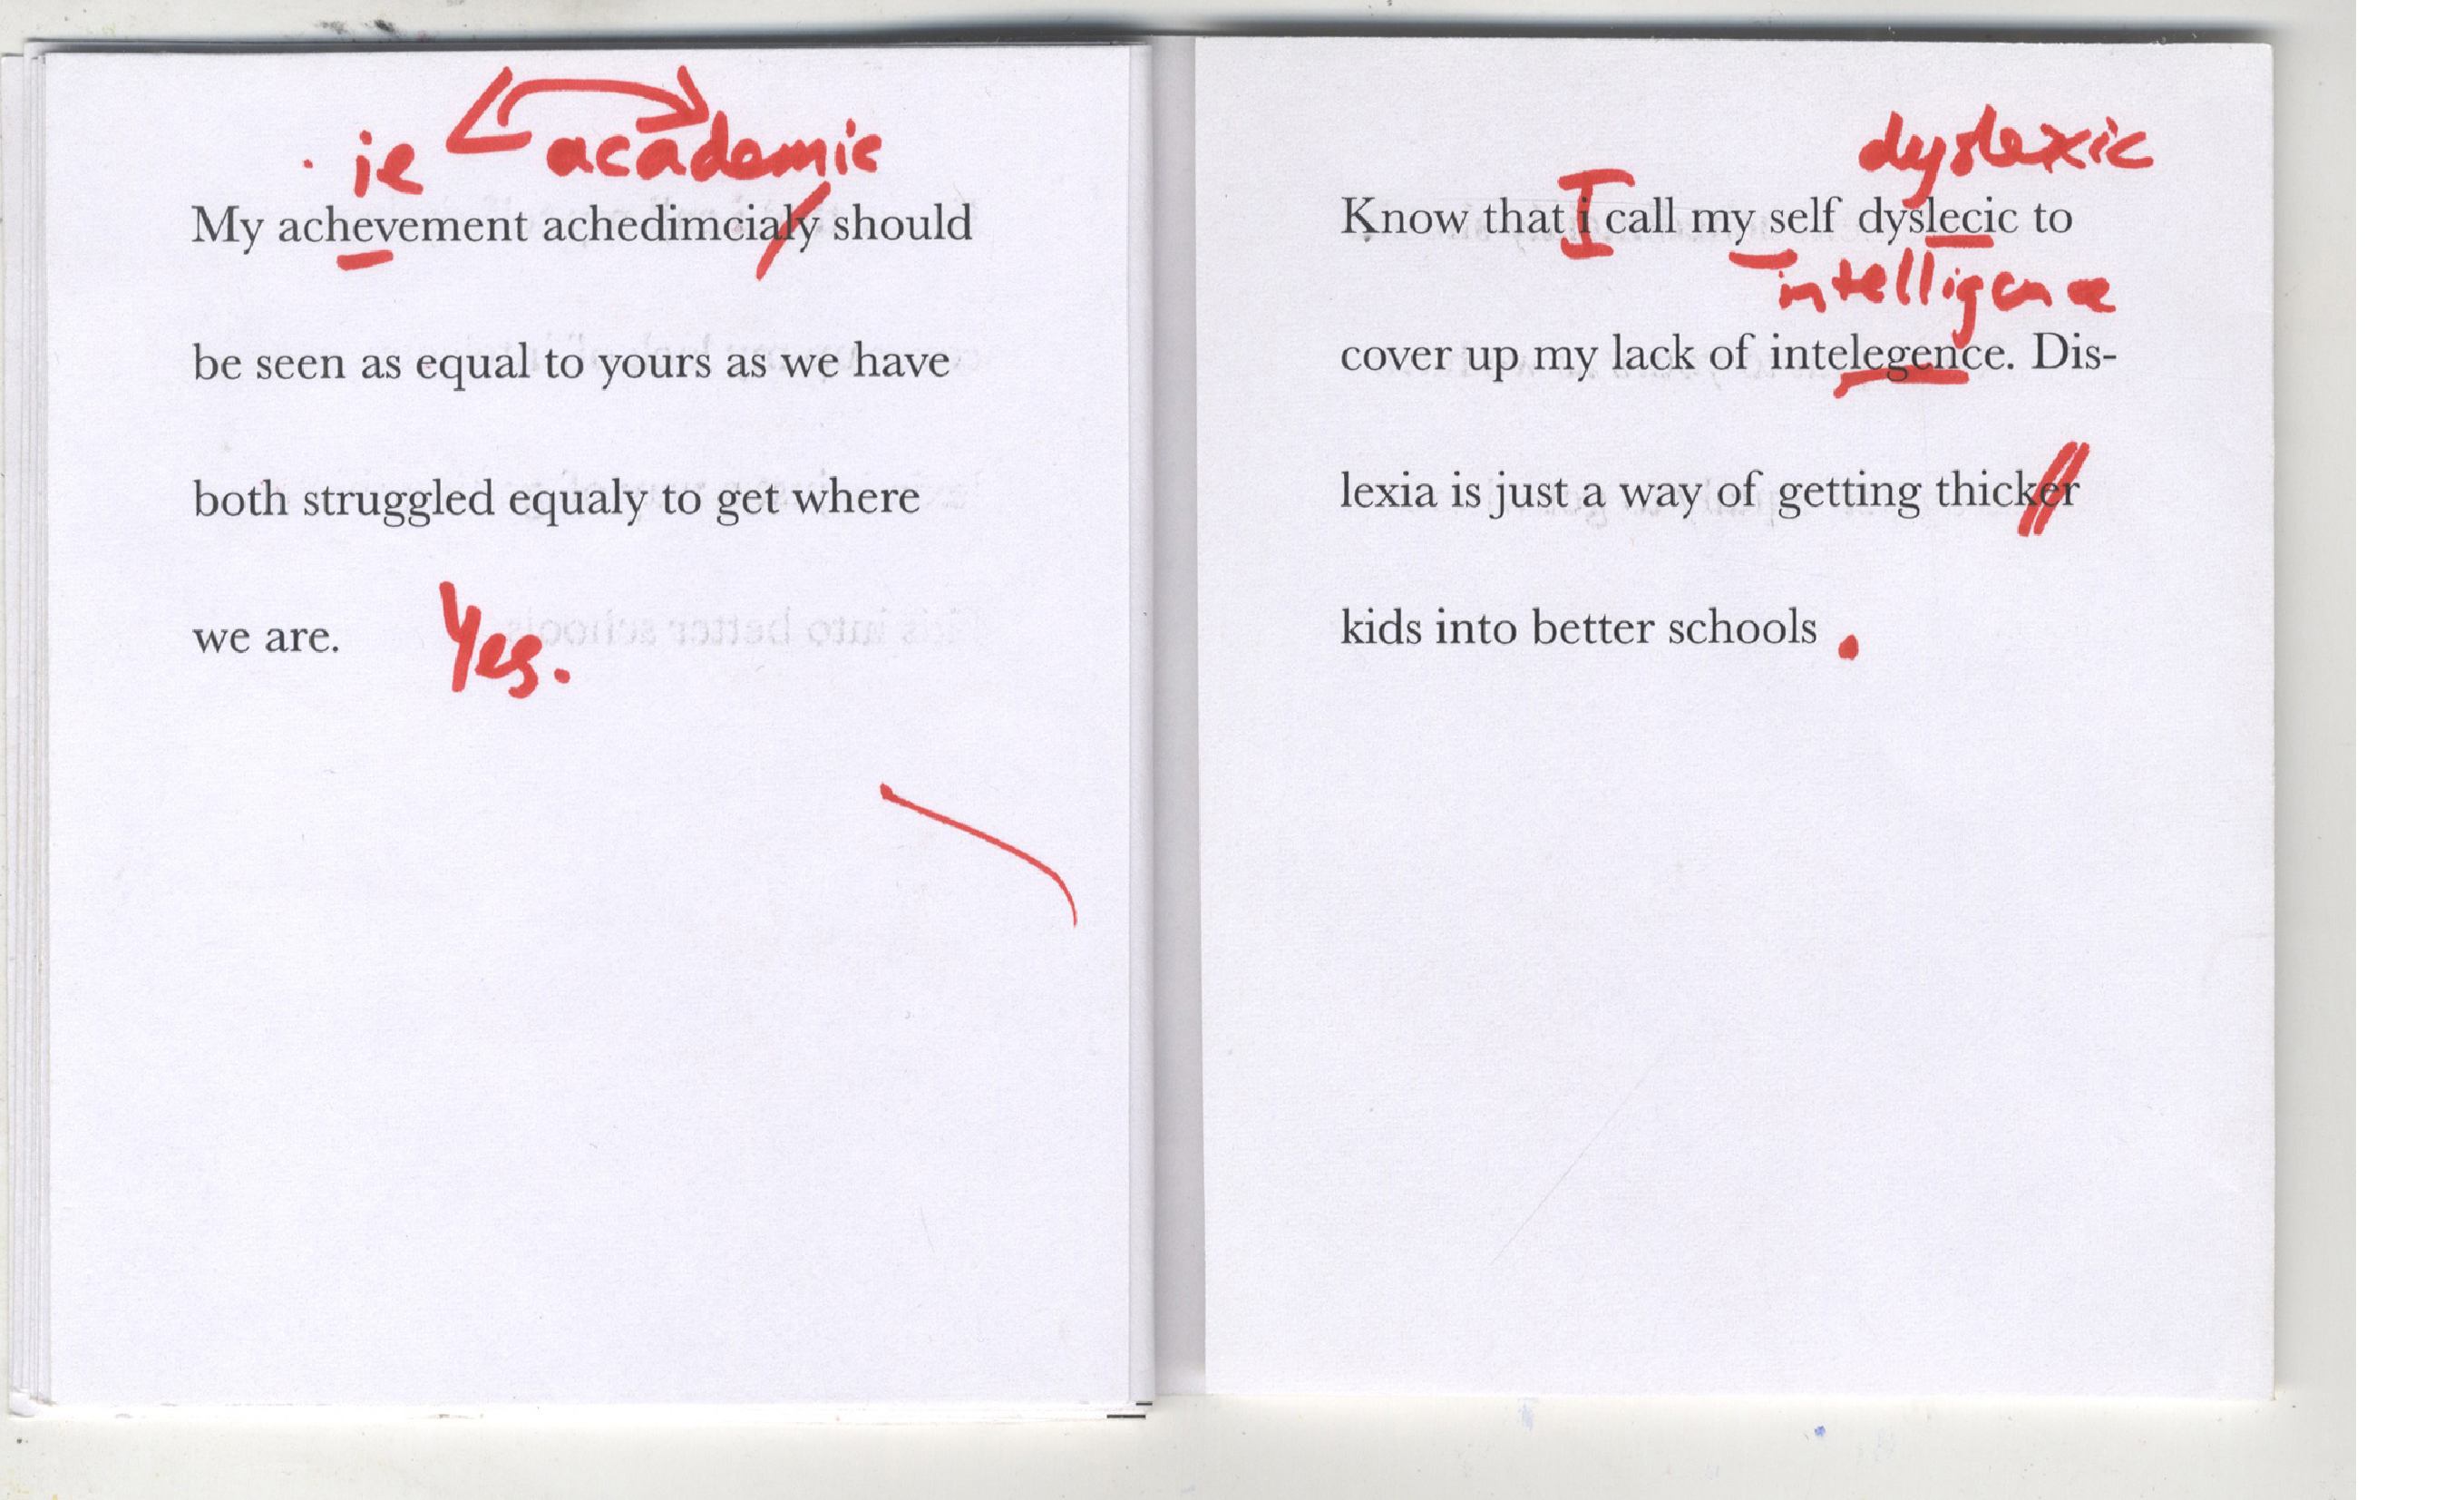 ie academic
My achevement achedimcialy should
be seen as equal to yours as we have
both struggled equaly to get where
we are. Yes.
dyslexic
Know that i I call my self dyslecic to
intelligence
cover up my lack of intelegence. Dis-
lexia is just a way of getting thicker
kids into better schools .